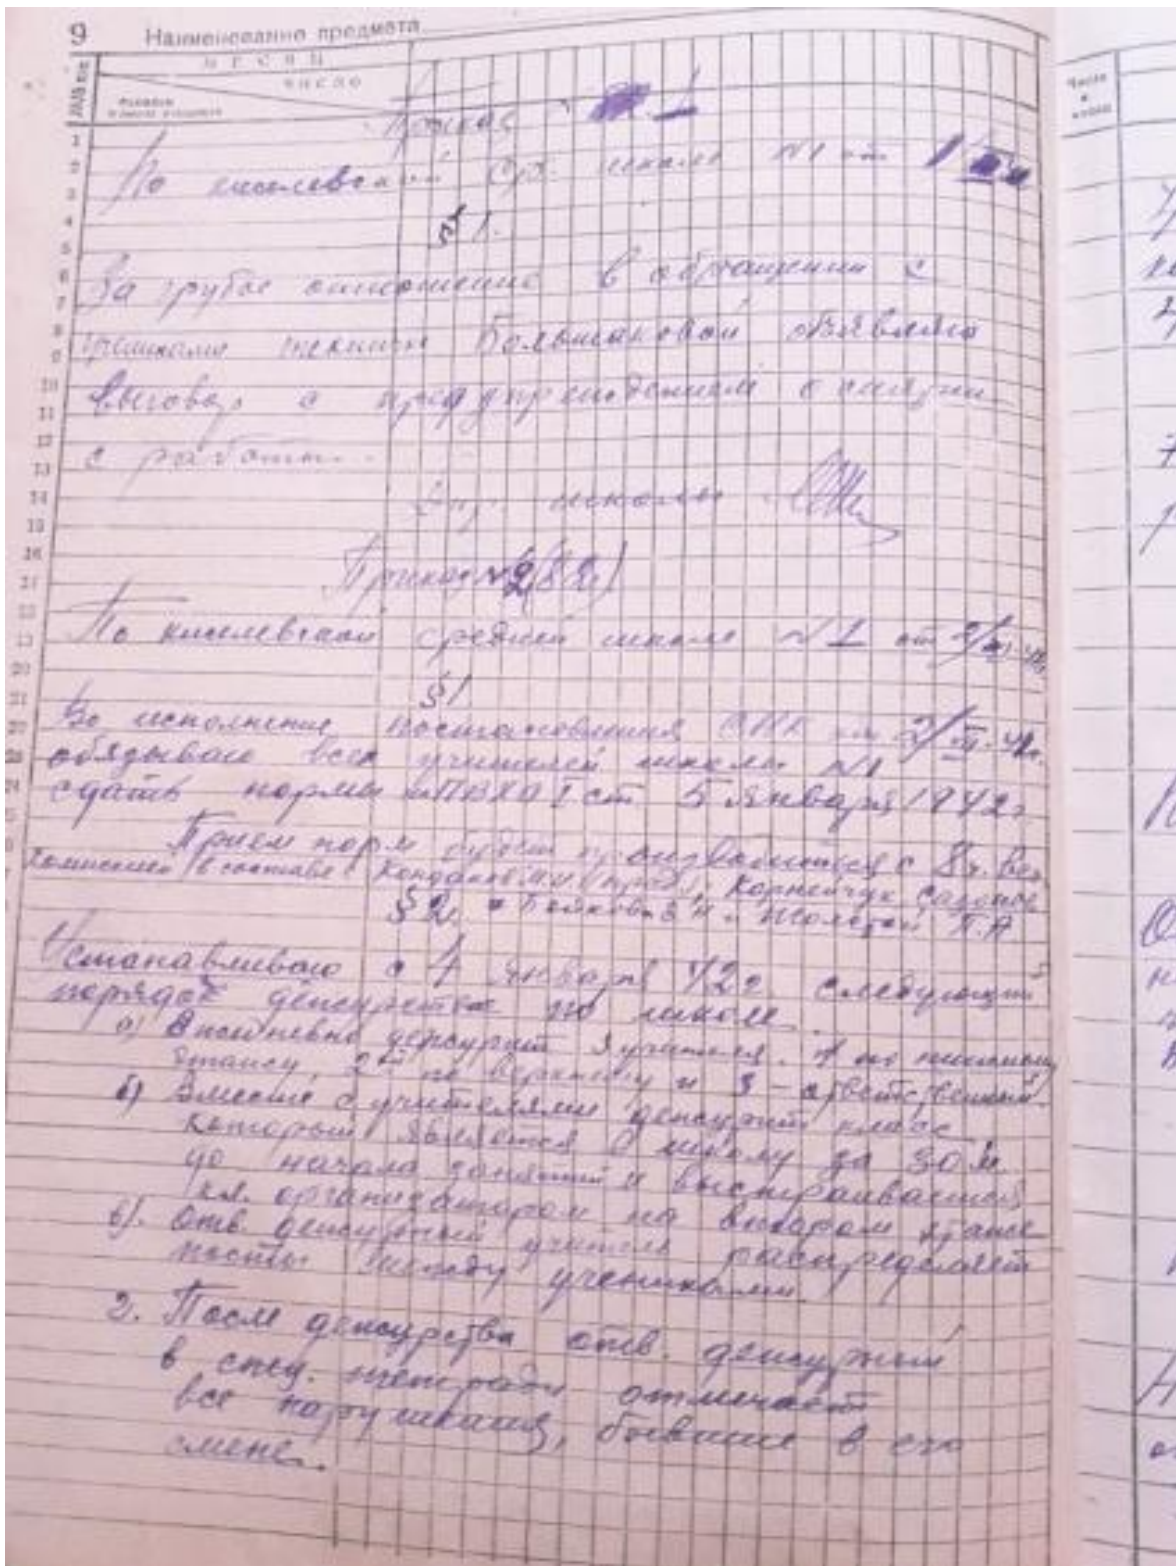 9 Наименование предмета
МЕСЯЦ
ЧИСЛО
Приказ № 1
По киселевской ср. школе №1 от 1
§ 1.
За грубое отношение в обращении с
Большаковой объявляю
выговор с предупреждением о снятии
с работы.
Дир. школы
Приказ №2
По киселевской средней школе №1 от 2/
§1
Во исполнение постановления СНК от 2/
обязываю всех учителей школы №1
сдать нормы ПВХО I ст 5 января 1942г
Прием норм будет производиться с 8ч. веч
комиссией в составе Кондаков (пред), Корнейчук
§2.
Устанавливаю с 4 января 42г. следующий
порядок дежурства по школе.
а) Ежедневно дежурят 3 учителя. 1 по нижнему
этажу, 2й по верхнему и 3 - ответственный.
б) Вместе с учителями дежурит класс
который является в школу за 30 м
до начала занятий и выстраивается
кл. организатором на втором этаже
в). Отв. дежурный учитель распределяет
посты между учениками.
2. После дежурства отв. дежурный
в спец. тетради отмечает
все нарушения, бывшие в его
смене.